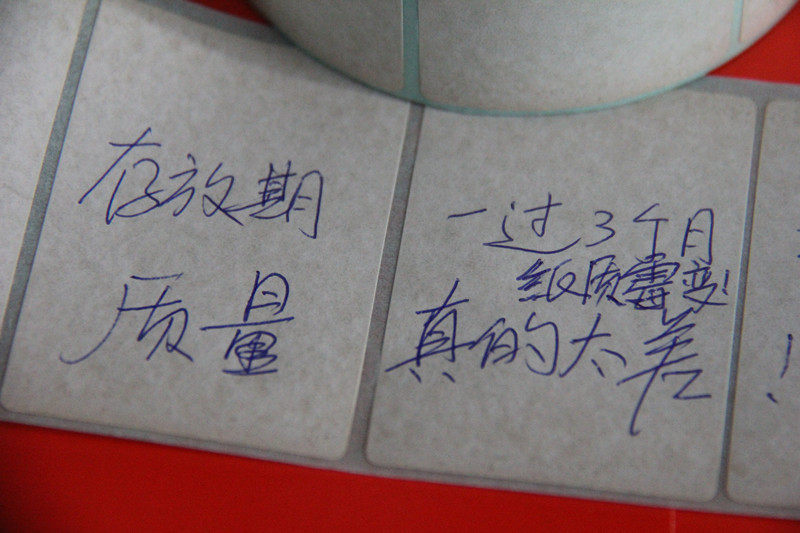 存放期
质量
一过3个月
纸质霉变!
真的太差
!